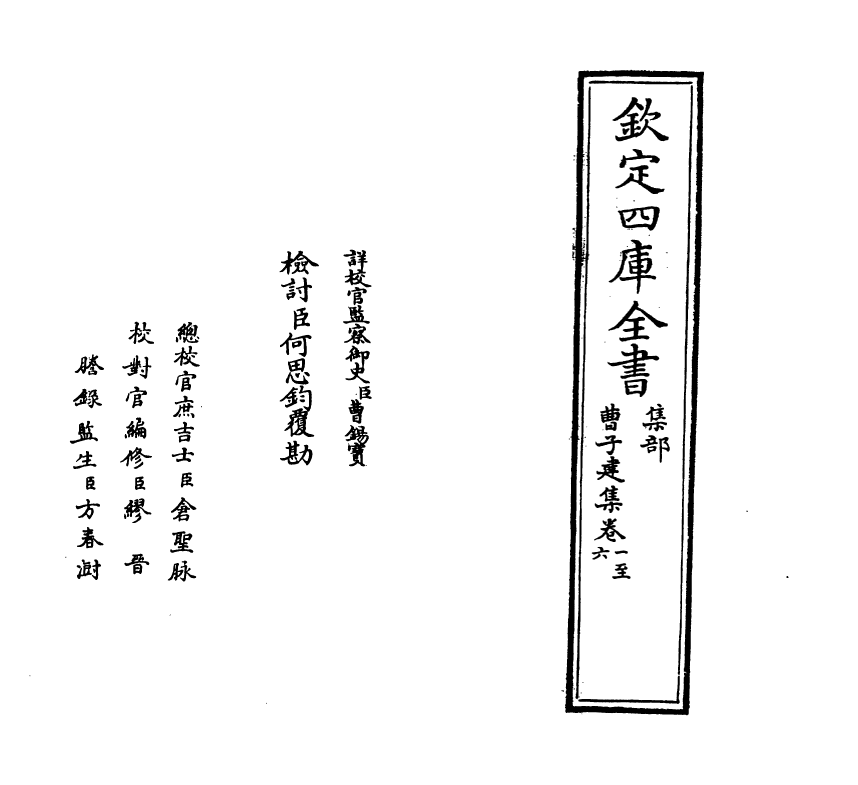 欽定四庫全書
集部
曹子建集卷一至六
詳校官監察御史臣曹錫寶
檢討臣何思鈞覆勘
總校官庶吉士臣倉聖脉
校對官編修臣繆晉
謄録監生臣方春澍